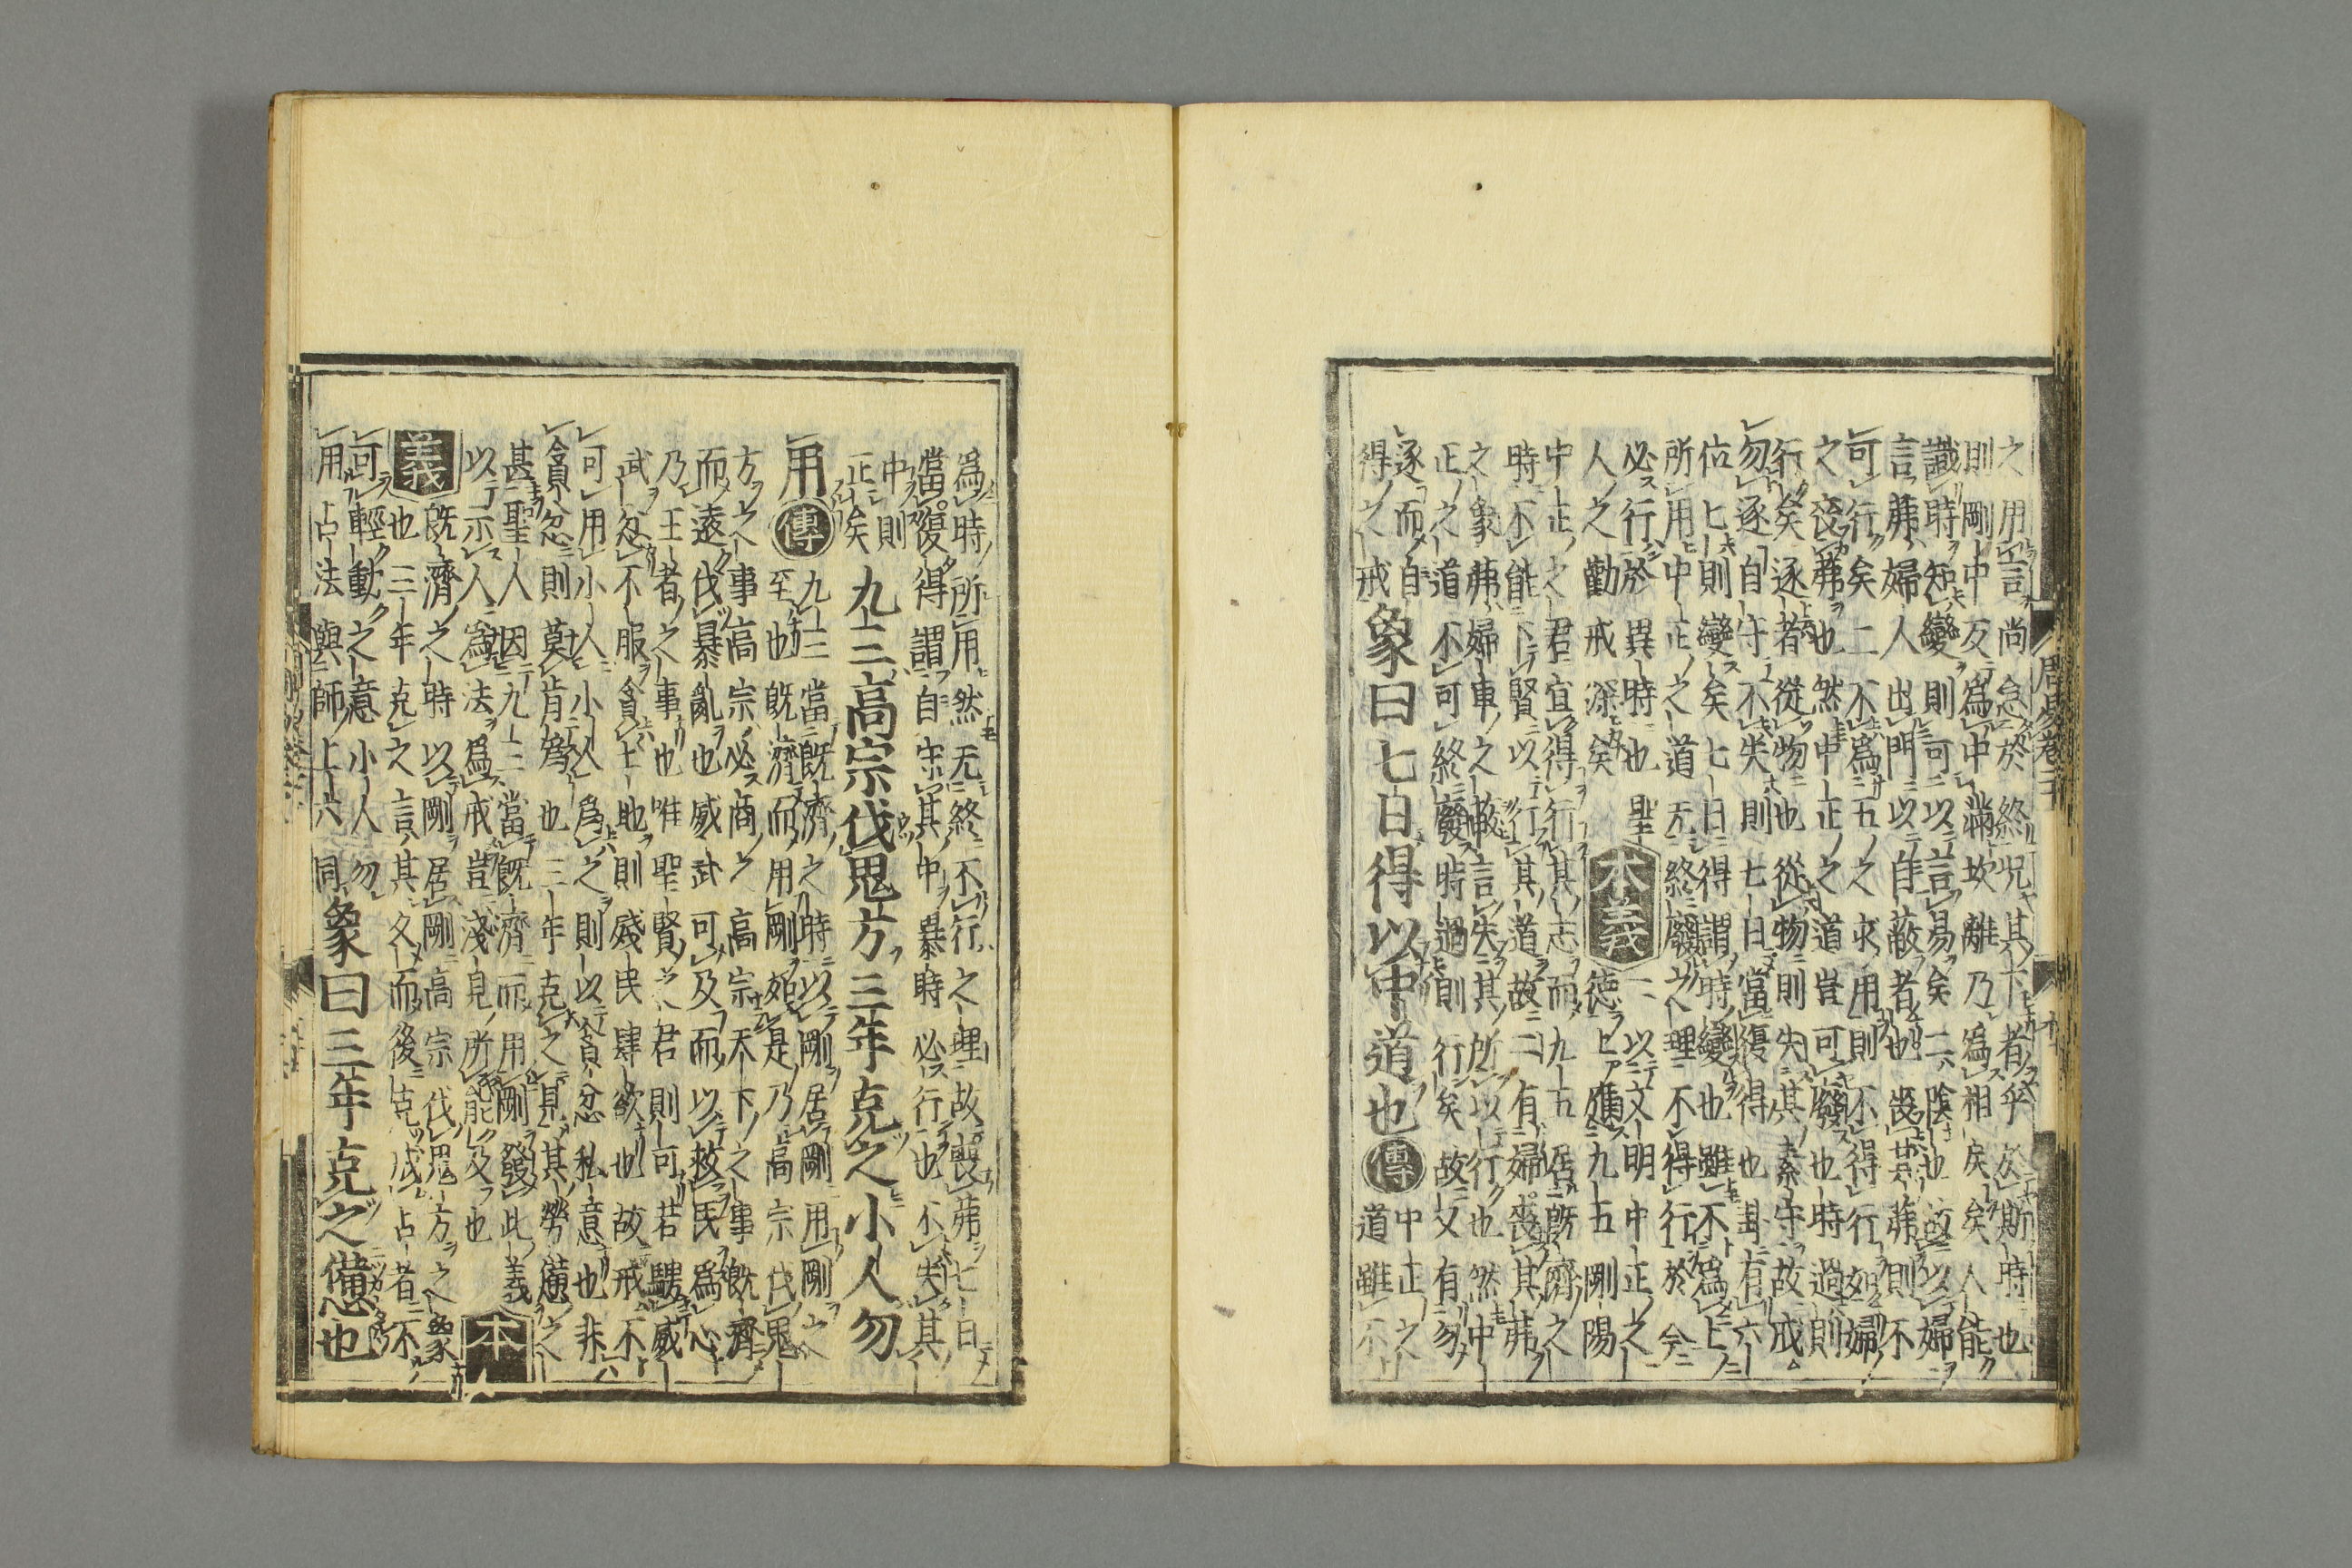 之用言尚怠於終況其下者乎於斯時也
則剛中反爲中滿坎離乃爲相戾矣人能
識時知變則可以言易矣二陰也故以婦
言茀婦人出門以自蔽者也喪其茀則不
可行矣二不爲五之求用則不得行如婦
之喪茀也然中正之道豈可廢也時過則
行矣逐者從物也從物則失其素守故戒
勿逐自守不失則七日當復得也卦有六
位七則變矣七日得謂時變也雖不爲上
所用中正之道无終廢之理不得行於今
必行於異時也聖
人之勸戒深矣
本義
二以文明中正之
德上應九五剛陽
中正之君宜得行其志而九五居既濟之
時不能下賢以行其道故二有婦喪其茀
之象茀婦車之蔽言失其所以行也然中
正之道不可終廢時過則行矣故又有勿
逐而自
得之戒
象曰七日得以中道也
傳
中正之
道雖不
爲時所用然无終不行之理故喪茀七日
當復得謂自守其中異時必行也不失其
中則
正矣
九三高宗伐鬼方三年克之小人勿
用
傳
九三當既濟之時以剛居剛用剛之
至也既濟而用剛如是乃高宗伐鬼
方之事高宗必商之高宗天下之事既濟
而遠伐暴亂也威武可及而以救民爲心
乃王者之事也唯聖賢之君則可若騁威
武忿不服貪土地則殘民肆欲也故戒不
可用小人小人爲之則以貪忿私意也非
貪忿則莫肯爲也三年克之見其勞憊之
甚聖人因九三當既濟而用剛發此義
以示人爲法爲戒豈淺見所能及也
本
義
既濟之時以剛居剛高宗伐鬼方之象
也三年克之言其久而後克戒占者不
可輕動之意小人勿
用占法與師上六同
象曰三年克之憊也
周易卷二十